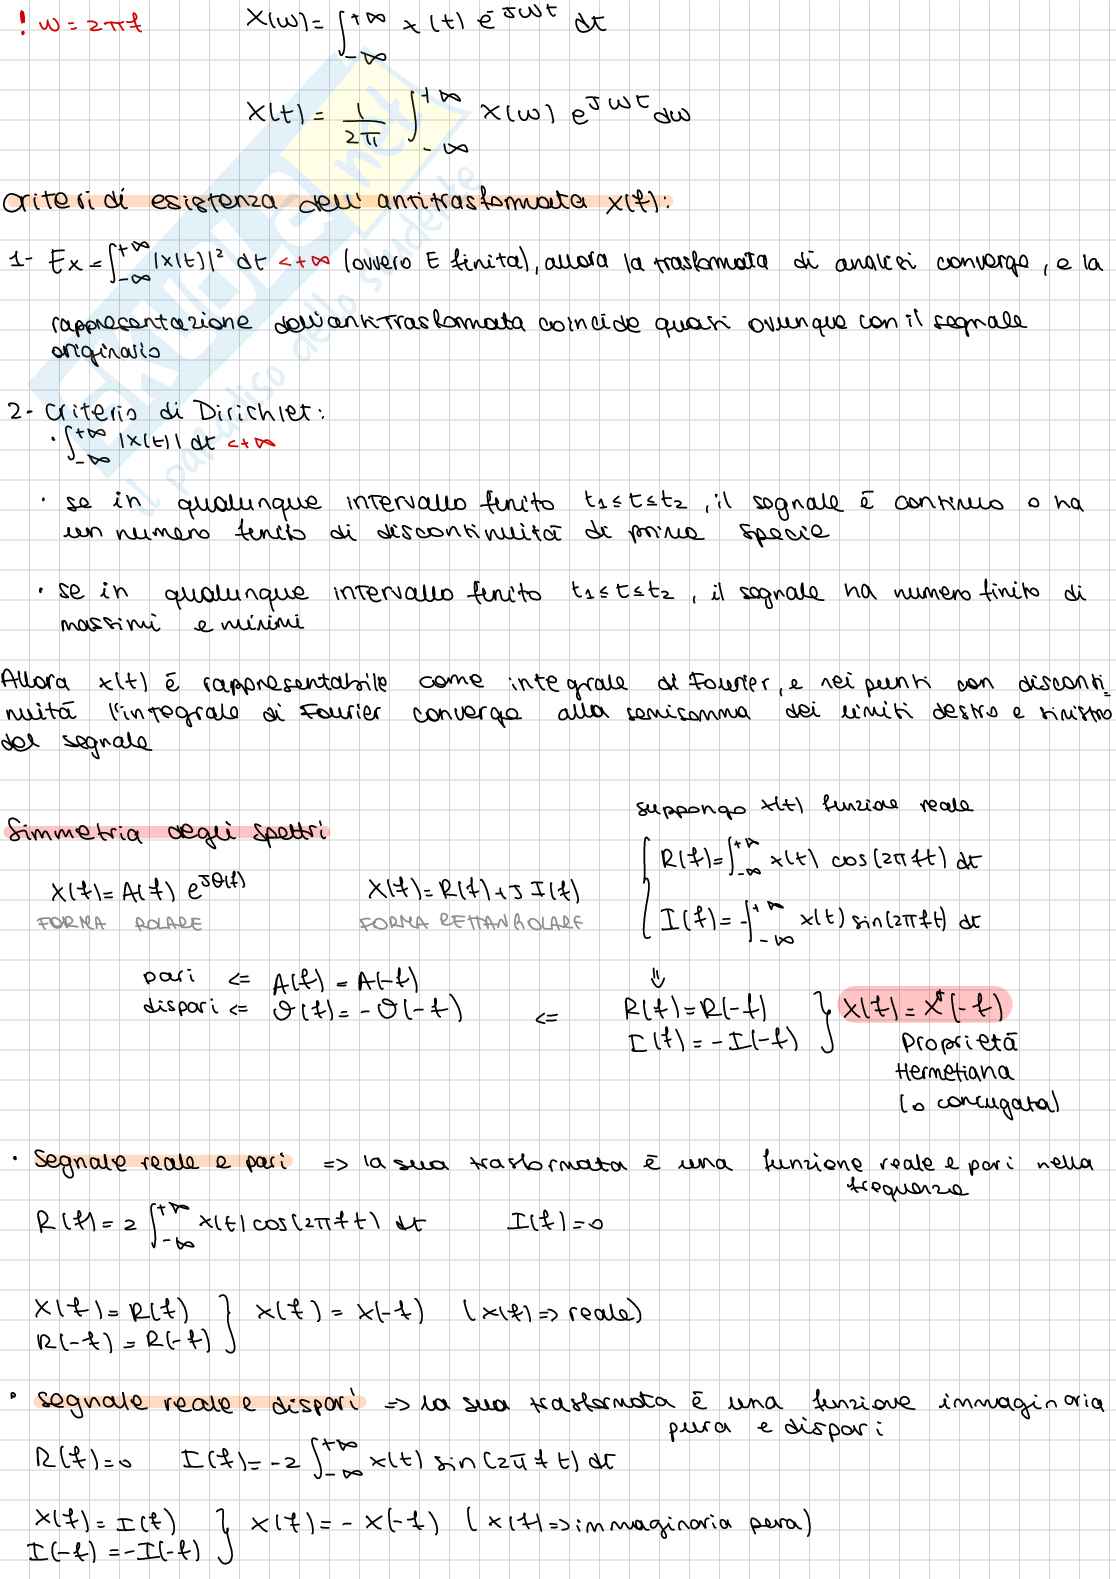 ! ω = 2πf
X(ω) = ∫_{-∞}^{+∞} x(t) e^{-Jωt} dt
X(t) = 1/2π ∫_{-∞}^{+∞} X(ω) e^{Jωt} dω
Criteri di esistenza dell'antitrasformata X(f):
1- Ex = ∫_{-∞}^{+∞} |X(t)|² dt <+∞ (ovvero E finita), allora la trasformata di analisi converge, e la
rappresentazione dell'antitrasformata coincide quasi ovunque con il segnale
originario
2- Criterio di Dirichlet:
· ∫_{-∞}^{+∞} |X(t)| dt <+∞
· se in qualunque intervallo finito t1≤t≤t2, il segnale è continuo o ha
un numero finito di discontinuità di prima specie
· se in qualunque intervallo finito t1≤t≤t2, il segnale ha numero finito di
massimi e minimi
Allora x(t) è rappresentabile come integrale di Fourier, e nei punti con disconti-
nuità l'integrale di Fourier converge alla semisomma dei limiti destro e sinistro
del segnale
Simmetria degli spettri
suppongo x(t) funzione reale
X(f) = A(f) e^{Jθ(f)}
FORMA POLARE
X(f) = R(f) + J I(f)
FORMA RETTANGOLARE
{ R(f) = ∫_{-∞}^{+∞} x(t) cos(2πft) dt
I(f) = -∫_{-∞}^{+∞} x(t) sin(2πft) dt
⇓
pari <= A(f) = A(-f)
dispari <= θ(f) = -θ(-f)
<=
R(f) = R(-f)
I(f) = -I(-f) } X(f) = X*(-f)
Proprietà
Hermetiana
(o coniugata)
· Segnale reale e pari => la sua trasformata è una funzione reale e pari nella
frequenza
R(f) = 2 ∫_{-∞}^{+∞} x(t) cos(2πft) dt I(f) = 0
X(f) = R(f)
R(-f) = R(-f) } X(f) = X(-f) (X(f) => reale)
· segnale reale e dispari => la sua trasformata è una funzione immaginaria
pura e dispari
R(f) = 0 I(f) = -2 ∫_{-∞}^{+∞} x(t) sin(2πft) dt
X(f) = I(f)
I(-f) = -I(-f) } X(f) = -X(-f) (X(f) => immaginaria pura)
skuola.net
il paradiso dello studente